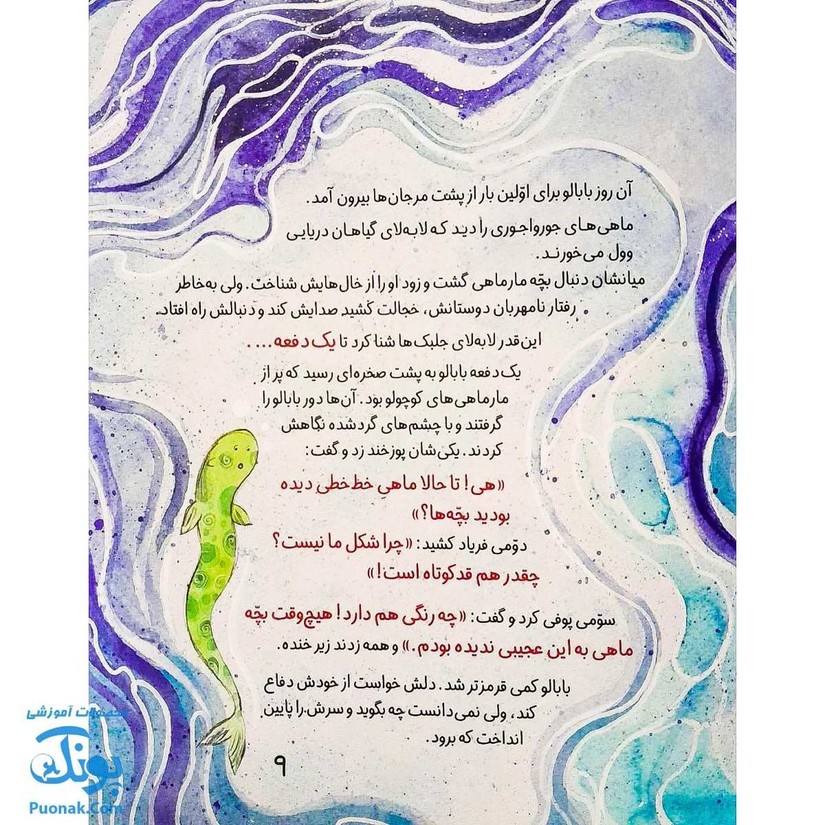 آن روز بابالو برای اوّلین بار از پشت مرجان‌ها بیرون آمد.
ماهی‌های جورواجوری را دید که لابه‌لای گیاهان دریایی
وول می‌خورند.
میانشان دنبال بچّه مارماهی گشت و زود او را از خال‌هایش شناخت. ولی به‌خاطر
رفتار نامهربان دوستانش، خجالت کشید صدایش کند و دنبالش راه افتاد.
این‌قدر لابه‌لای جلبک‌ها شنا کرد تا یک دفعه... .
یک دفعه بابالو به پشت صخره‌ای رسید که پر از
مارماهی‌های کوچولو بود. آن‌ها دور بابالو را
گرفتند و با چشم‌های گرد شده نگاهش
کردند. یکی‌شان پوزخند زد و گفت:
«هی! تا حالا ماهیِ خط‌خطی دیده
بودید بچّه‌ها؟»
دوّمی فریاد کشید: «چرا شکل ما نیست؟
چقدر هم قدکوتاه است!»
سوّمی پوفی کرد و گفت: «چه رنگی هم دارد! هیچ‌وقت بچّه
ماهی به این عجیبی ندیده بودم.» و همه زدند زیر خنده.
بابالو کمی قرمزتر شد. دلش خواست از خودش دفاع
کند، ولی نمی‌دانست چه بگوید و سرش را پایین
انداخت که برود.
۹
آموزشی
پونک
Puonak.Com